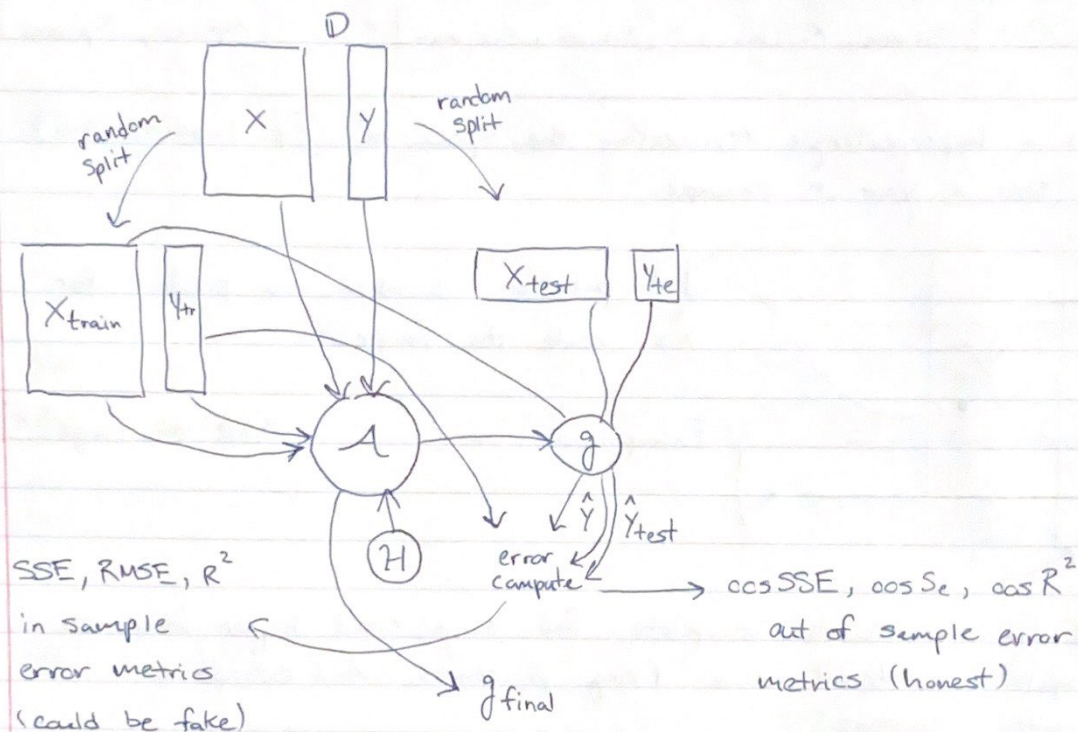 D
X
Y
random
split
random
split
X train
Ytr
X test
Yte
A
g
H
Ŷ
Ŷtest
error
compute
SSE, RMSE, R²
in sample
error metrics
(could be fake)
oos SSE, oos Se, oos R²
out of sample error
metrics (honest)
g final